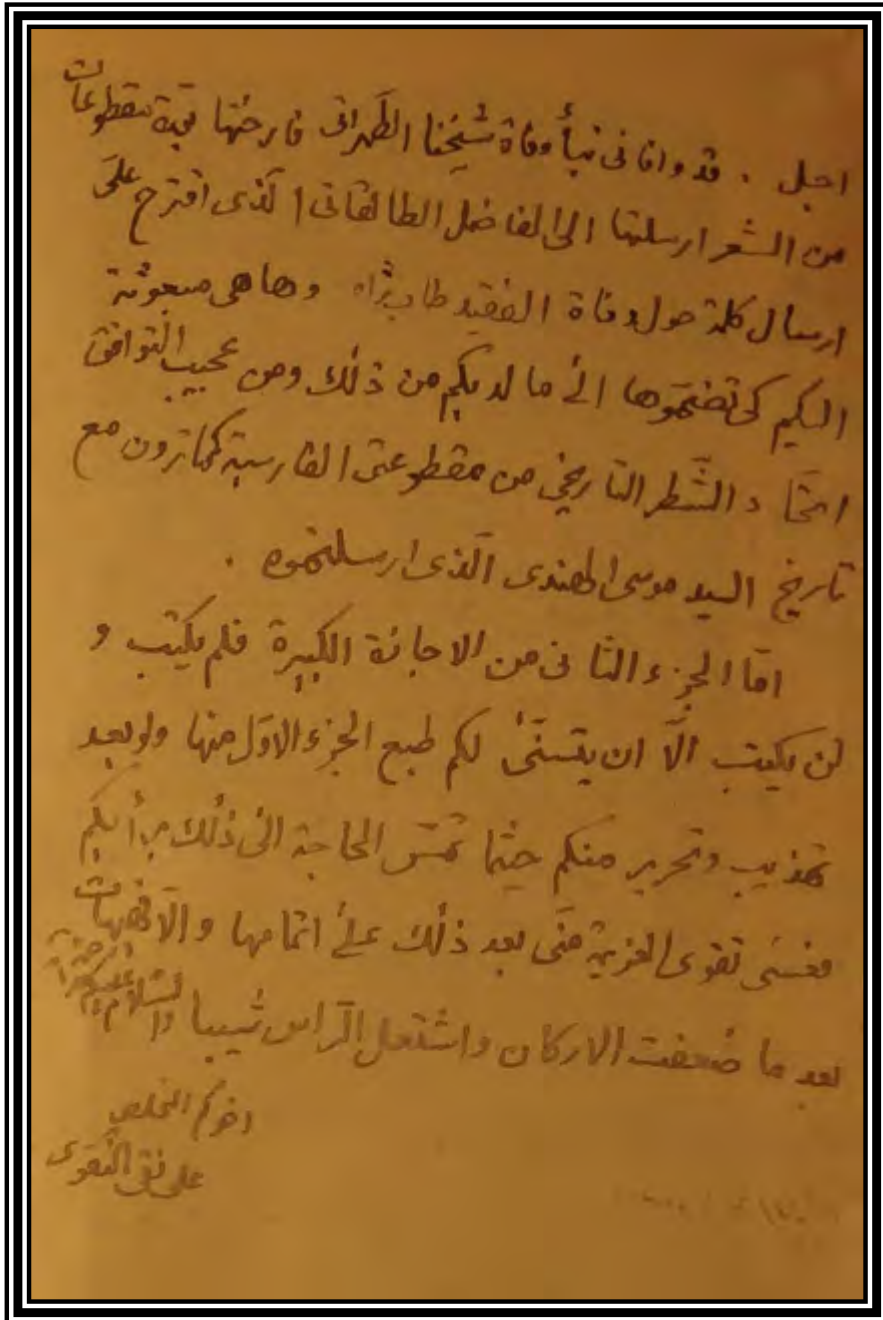 اجل . قد وافانى نبأ وفاة شيخنا الطهرانى فارختها بعدة مقطوعات
من الشعر ارسلتها الى الفاضل الطالقانى الّذى اقترح علىّ
ارسال كلمة حول وفاة الفقيد طاب ثراه وها هى مبعوثة
اليكم كى تضمّوها الى ما لديكم من ذلك ومن عجيب التوافق
اتحاد الشّطر التاريخي من مقطوعتى الفارسية كما ترون مع
تاريخ السيد موسى الهندى الّذى ارسلتموه .
امّا الجزء الثانى من الاجازة الكبيرة فلم يكتب و
لن يكتب الّا ان يتسنّى لكم طبع الجزء الاوّل منها ولو بعد
تهذيب وتحرير منكم حيثما تمسّ الحاجة الى ذلك برأيكم
فعسى تقوى العزيمة منّى بعد ذلك على اتمامها والّا فهيهات
بعد ما ضعفت الاركان واشتعل الرّاس شيبا والسّلام عليكم
اخوكم المخلص
على نقى النّقوى